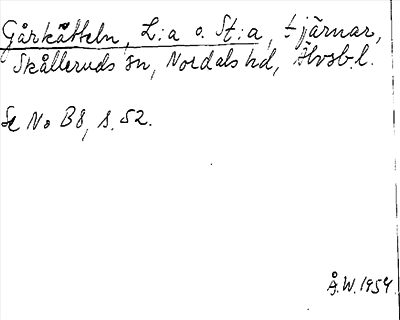 Gårkätteln, L:a o. St:a, tjärnar,
Skålleruds sn, Nordals hd, Älvsb.l.
Se No B8, s. 52.
Å.W. 1954.